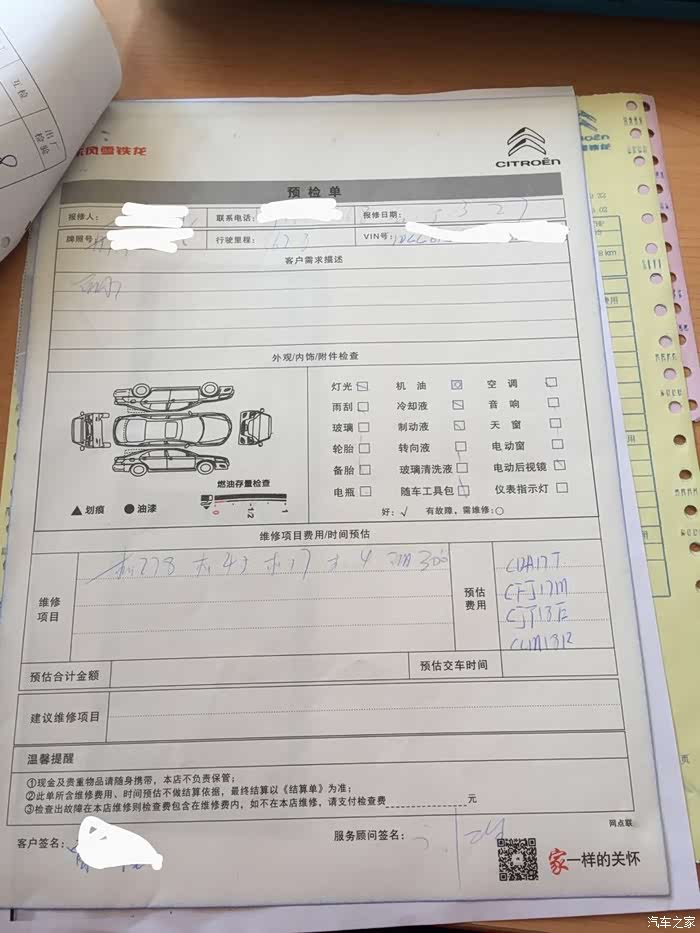 互检
出厂
检验
东风雪铁龙
CITROËN
预检单
报修人: 联系电话: 报修日期:
牌照号: 行驶里程: VIN号:
客户需求描述
外观/内饰/附件检查
灯光 机油 空调
雨刮 冷却液 音响
玻璃 制动液 天窗
轮胎 转向液 电动窗
备胎 玻璃清洗液 电动后视镜
电瓶 随车工具包 仪表指示灯
燃油存量检查
0 1/2 1
▲划痕 ●油漆
好:√ 有故障,需维修:○
维修项目费用/时间预估
维修
项目
预估
费用
CJA17T
CFJ17M
预估合计金额
预估交车时间
建议维修项目
温馨提醒
①现金及贵重物品请随身携带,本店不负责保管;
②此单所含维修费用、时间预估不做结算依据,最终结算以《结算单》为准;
③检查出故障在本店维修则检查费包含在维修费内,如不在本店维修,请支付检查费 元
网点联
客户签名:
服务顾问签名:
家一样的关怀
汽车之家